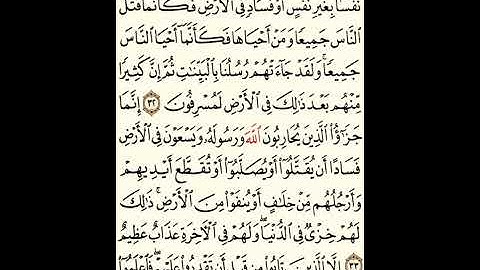 نَفْسًۢا بِغَيْرِ نَفْسٍ أَوْ فَسَادٍ فِي ٱلْأَرْضِ فَكَأَنَّمَا قَتَلَ
ٱلنَّاسَ جَمِيعًا وَمَنْ أَحْيَاهَا فَكَأَنَّمَآ أَحْيَا ٱلنَّاسَ
جَمِيعًا ۚ وَلَقَدْ جَآءَتْهُمْ رُسُلُنَا بِٱلْبَيِّنَٰتِ ثُمَّ إِنَّ كَثِيرًا
مِّنْهُم بَعْدَ ذَٰلِكَ فِي ٱلْأَرْضِ لَمُسْرِفُونَ ٣٢ إِنَّمَا
جَزَٰٓؤُا۟ ٱلَّذِينَ يُحَارِبُونَ ٱللَّهَ وَرَسُولَهُۥ وَيَسْعَوْنَ فِي ٱلْأَرْضِ
فَسَادًا أَن يُقَتَّلُوٓا۟ أَوْ يُصَلَّبُوٓا۟ أَوْ تُقَطَّعَ أَيْدِيهِمْ
وَأَرْجُلُهُم مِّنْ خِلَٰفٍ أَوْ يُنفَوْا۟ مِنَ ٱلْأَرْضِ ۚ ذَٰلِكَ
لَهُمْ خِزْىٌ فِي ٱلدُّنْيَا ۖ وَلَهُمْ فِي ٱلْأَخِرَةِ عَذَابٌ عَظِيمٌ
٣٣ إِلَّا ٱلَّذِينَ تَابُوا۟ مِن قَبْلِ أَن تَقْدِرُوا۟ عَلَيْهِمْ ۖ فَٱعْلَمُوٓا۟